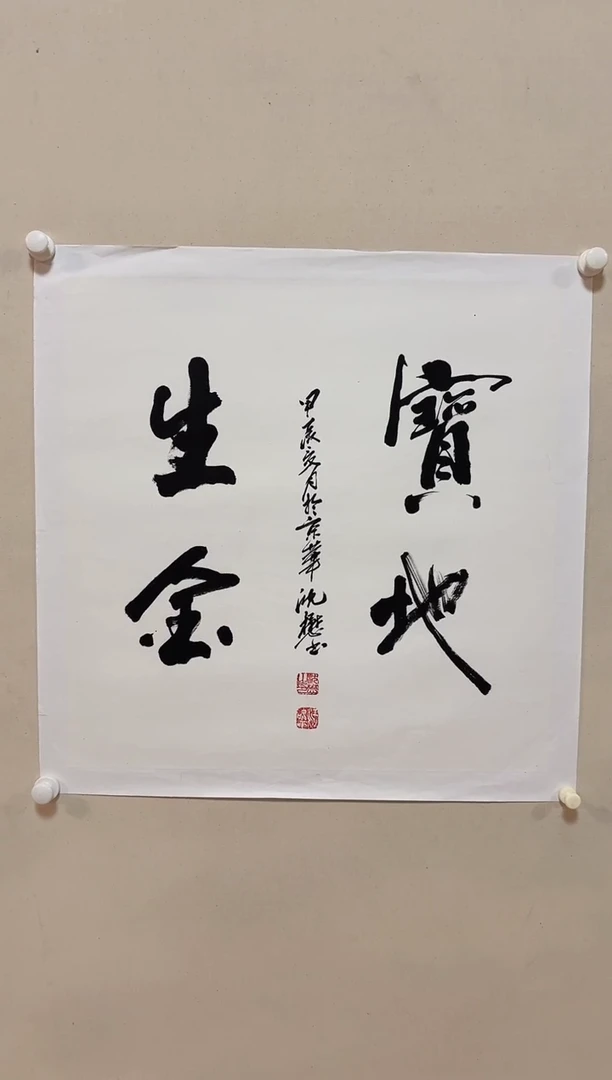 寶地
生金
甲辰夏月於京華沈懋書